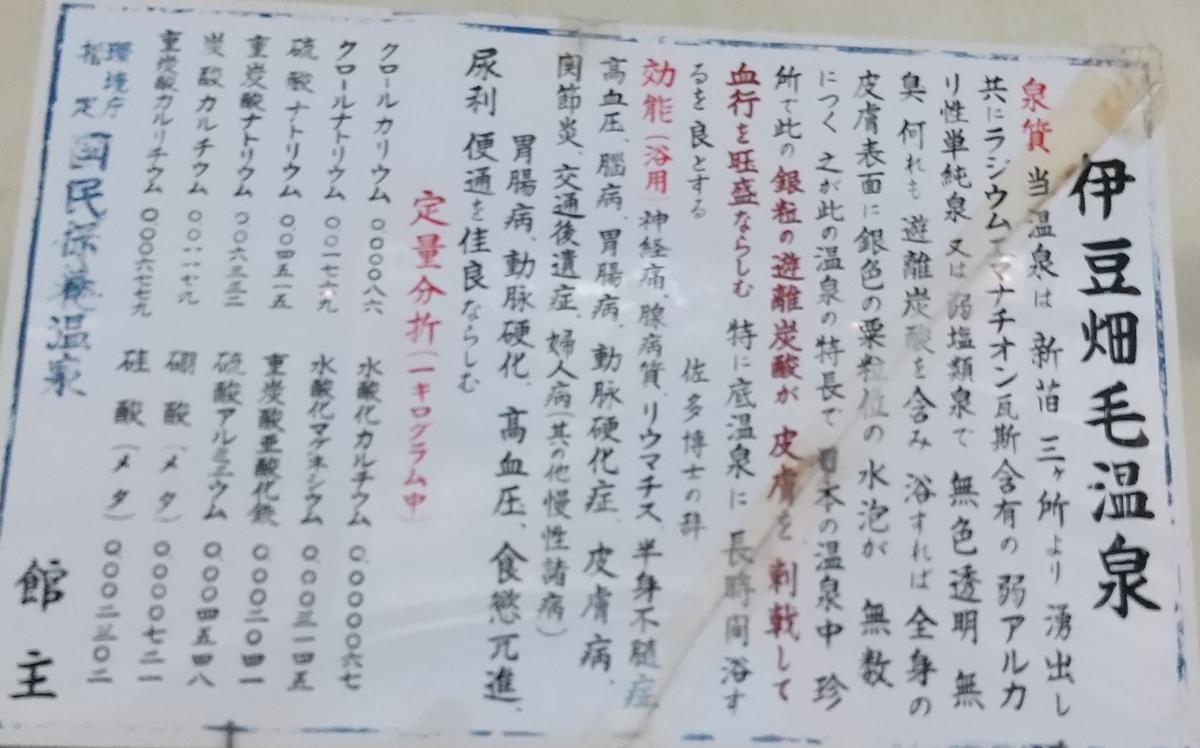 伊豆畑毛温泉
泉質 当温泉は 新旧 三ヶ所より 湧出し
共にラジウムエマナチオン瓦斯含有の 弱アルカ
リ性単純泉 又は 弱塩類泉で 無色透明 無
臭 何れも 遊離炭酸を含み 浴すれば 全身の
皮膚表面に銀色の粟粒位の 水泡が 無数
につく 之が此の温泉の特長で 日本の温泉中 珍
所で此の銀粒の遊離炭酸が 皮膚を 刺戟して
血行を旺盛ならしむ 特に底温泉に 長時間浴す
るを良とする 佐多博士の辞
効能(浴用)神経痛、腺病質、リウマチス、半身不髄症
高血圧、脳病、胃腸病、動脈硬化症、皮膚病、
関節炎、交通後遺症、婦人病(其の他慢性諸病)
胃腸病、動脈硬化、高血圧、食慾亢進、
尿利 便通を佳良ならしむ
定量分折(一キログラム中)
クロールカリウム 〇.〇〇〇八六
クロールナトリウム 〇.〇一七六九
硫酸ナトリウム 〇.〇四五一五
重炭酸ナトリウム 〇.〇六三三二
炭酸カルチウム 〇.〇一一七九
重炭酸カルリチウム 〇.〇〇六七七九
水酸化カルチウム 〇.〇〇〇〇六七
水酸化マグネシウム 〇.〇〇三一四五
重炭酸亜酸化鉄 〇.〇〇二〇四一
硫酸アルミニウム 〇.〇〇四五四八
硼酸(メタ) 〇.〇〇〇七二一
硅酸(メタ) 〇.〇〇二三〇二
環境庁
指定
国民保養温泉
館主